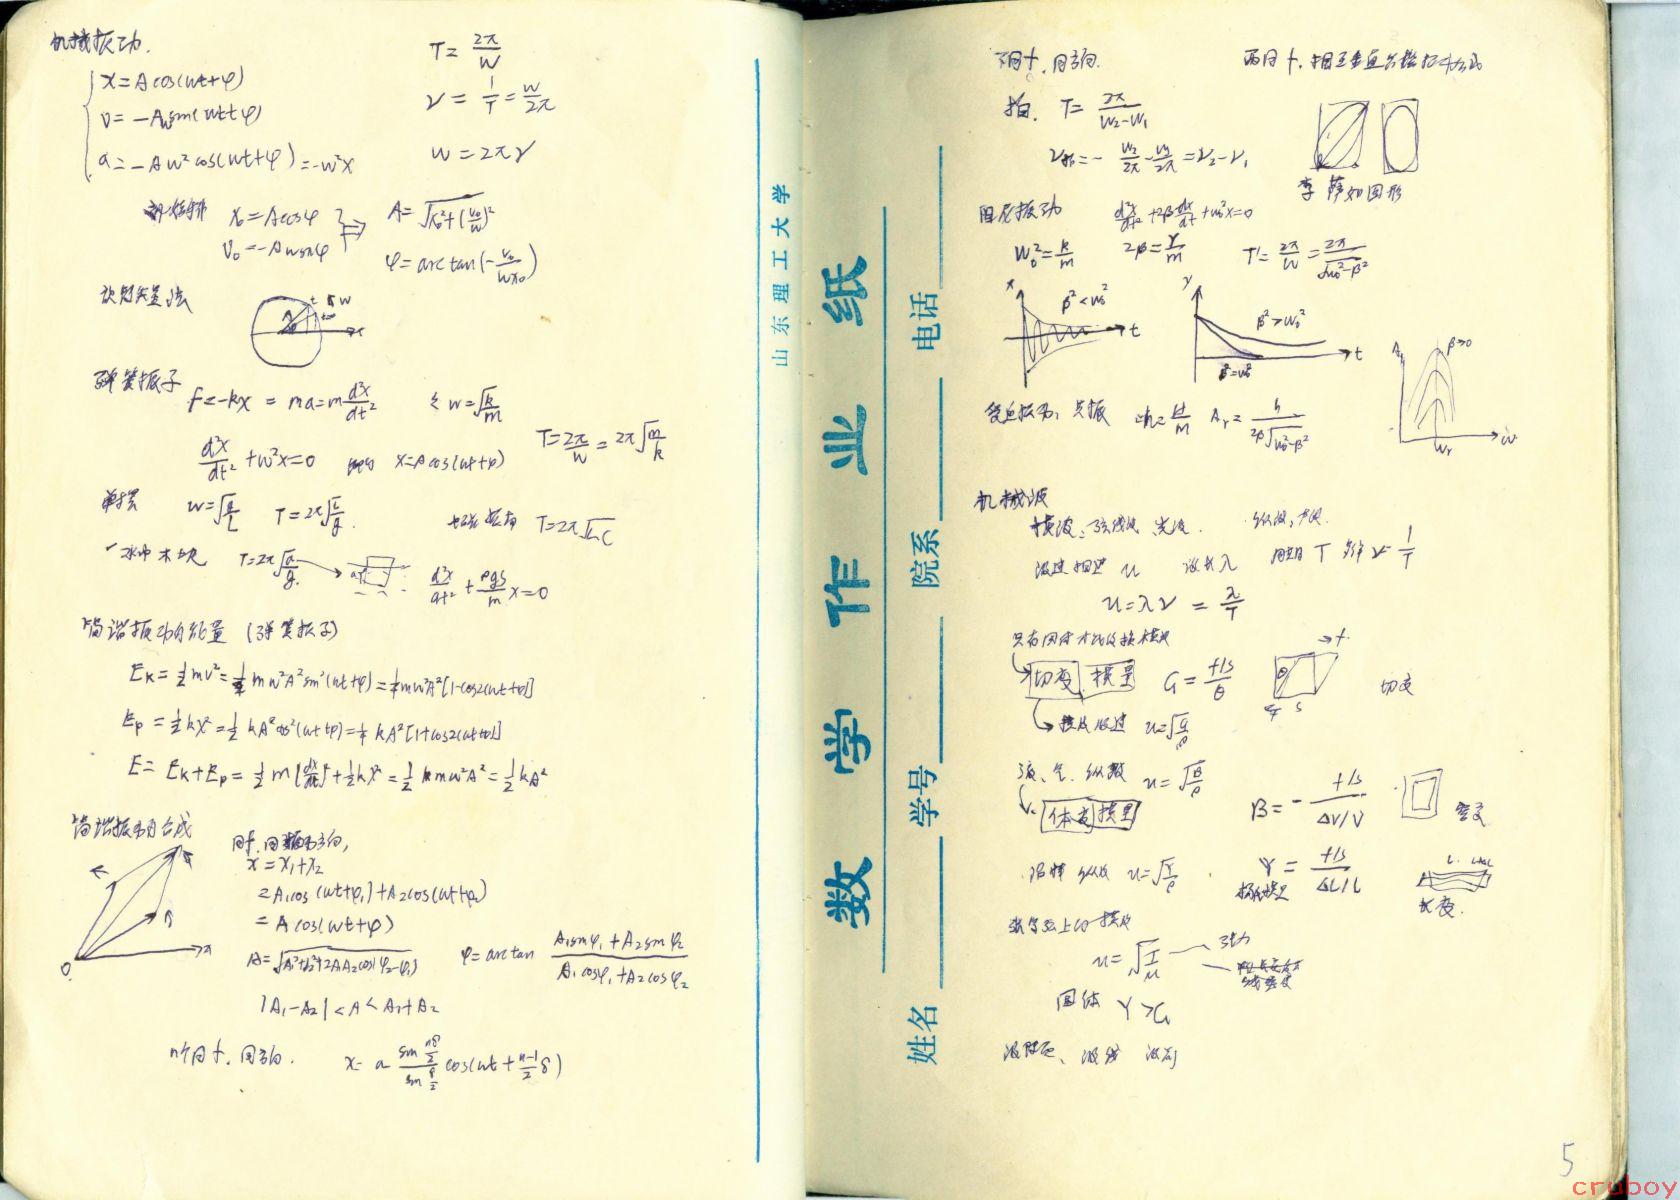 机械振动.
x = A cos(wt+φ)
v = -Aw sin(wt+φ)
a = -Aw² cos(wt+φ) = -w²x
T = 2π/w
ν = 1/T = w/2π
w = 2πν
x₀ = A cosφ
v₀ = -Aw sinφ
⇒ A = √(x₀²+(v₀/w)²)
φ = arc tan(-v₀/wx₀)
旋转矢量法
弹簧振子
f = -kx = ma = m d²x/dt²
令 w = √(k/m)
d²x/dt² + w²x = 0
x = A cos(wt+φ)
T = 2π/w = 2π√(m/k)
单摆 w = √(g/L) T = 2π√(L/g).
电磁振荡 T = 2π√LC
水中木块 T = 2π√(a/g).
a
d²x/dt² + ρgs/m x = 0
简谐振动的能量 (弹簧振子)
Eₖ = ½mv² = ½mw²A² sin²(wt+φ) = ¼mw²A²[1-cos2(wt+φ)]
Eₚ = ½kx² = ½kA²cos²(wt+φ) = ¼kA²[1+cos2(wt+φ)]
E = Eₖ+Eₚ = ½m(dx/dt)²+½kx² = ½mw²A² = ½kA²
简谐振动的合成
同f.同方向,
x = x₁+x₂
= A₁cos(wt+φ₁)+A₂cos(wt+φ₂)
= A cos(wt+φ)
A = √(A₁²+A₂²+2A₁A₂cos(φ₂-φ₁))
φ = arc tan (A₁sinφ₁+A₂sinφ₂)/(A₁cosφ₁+A₂cosφ₂)
O x
|A₁-A₂| < A < A₁+A₂
n个同f.同方向.
x = a (sin nδ/2)/(sin δ/2) cos(wt+(n-1)/2 δ)
山东理工大学
数学作业纸
姓名 学号 院系 电话
不同f.同方向.
拍. T = 2π/(w₂-w₁)
ν拍 = w₂/2π - w₁/2π = ν₂-ν₁
两同f.相互垂直
李萨如图形
阻尼振动 d²x/dt²+2βdx/dt+w₀²x=0
w₀² = k/m 2β = γ/m T' = 2π/w = 2π/√(w₀²-β²)
x β²<w₀² t
β²>w₀² t
β²=w₀²
A β→0
wᵣ w
受迫振动,共振 h = H/m Aᵣ = h/(2β√(w₀²-β²))
机械波
横波、弦线波 光波.
纵波,声波.
波速相速 u 波长λ 周期 T 频率 ν = 1/T
u = λν = λ/T
切变模量 G = (f/s)/θ
θ f s
切变
横波波速 u = √(G/ρ)
液、气、纵波 u = √(B/ρ)
体变模量
B = - (f/s)/(ΔV/V)
Y = (f/s)/(ΔL/L)
长变.
u = √(T/μ)
张力
线密度
固体 Y > G
波阵面、波线 波前
5
cruboy